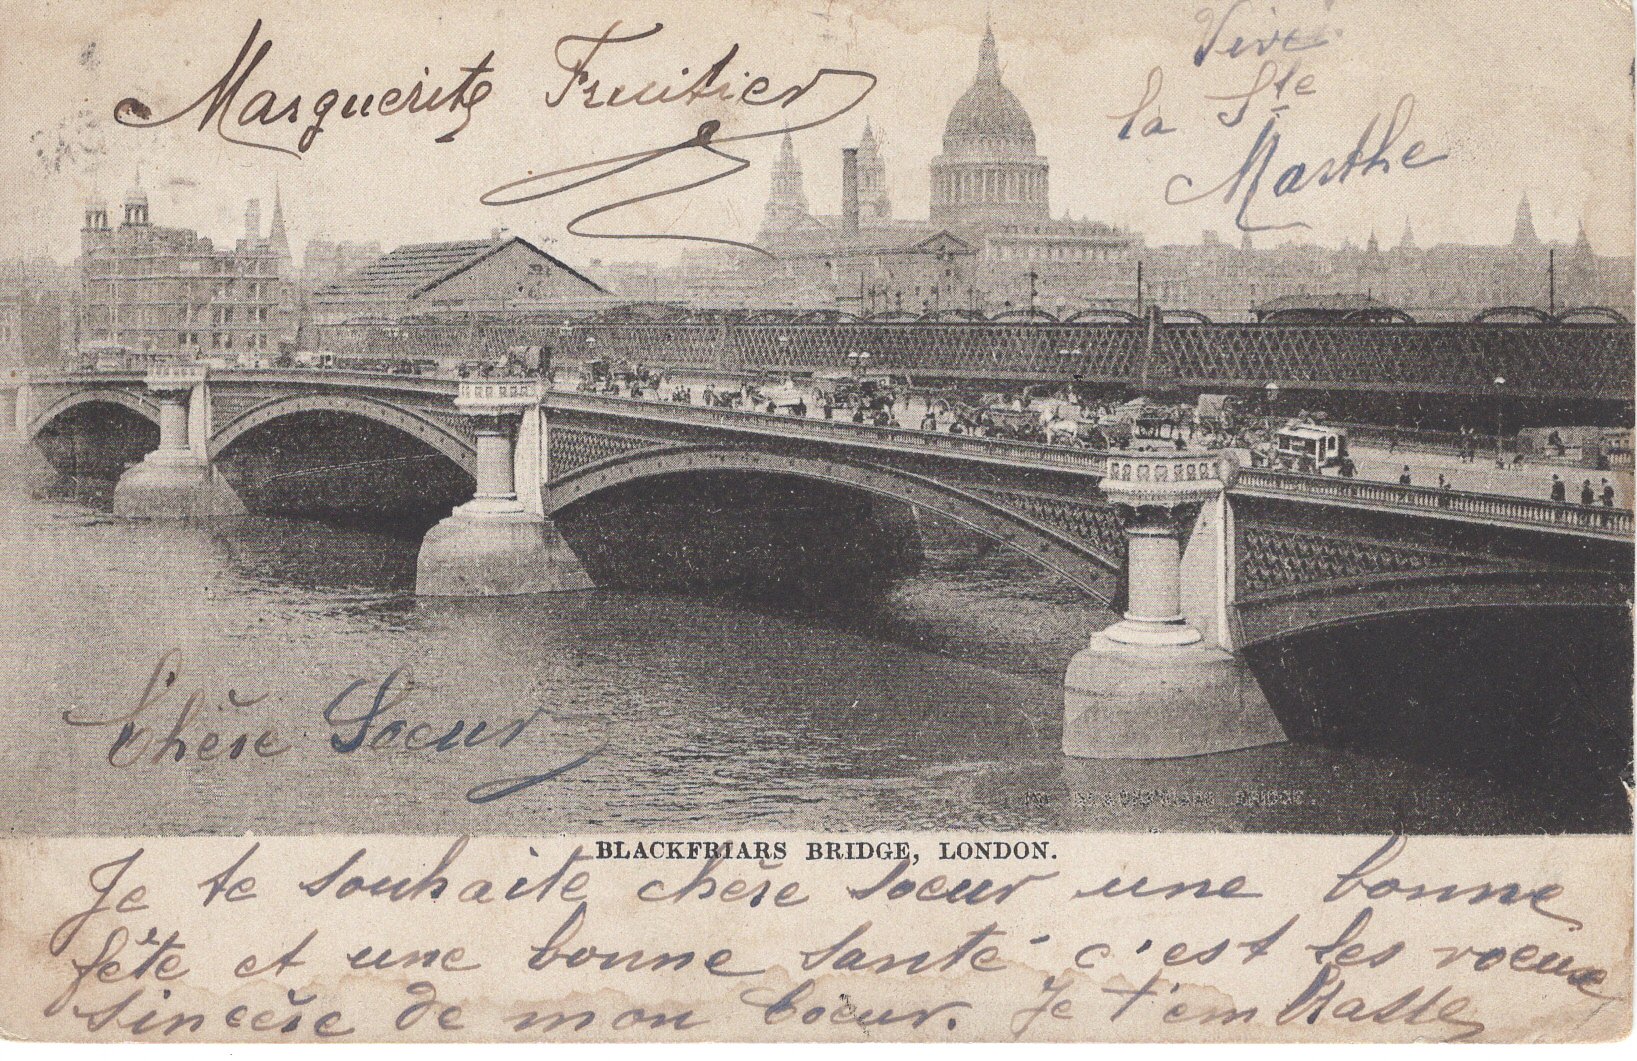 Marguerite Fruitier
Vive
la Ste
Marthe
Chère Soeur
BLACKFRIARS BRIDGE, LONDON.
Je te souhaite chère soeur une bonne
fête et une bonne santé c'est les voeux
sincère de mon coeur. Je t'embrasse